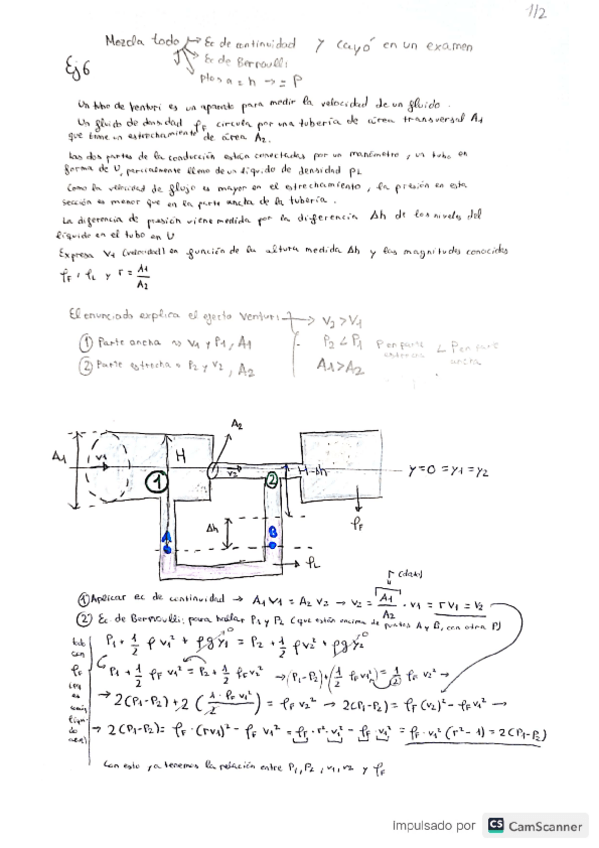 1/2
Mezcla todo → Ec de continuidad y cayó en un examen
Ec de Bernoulli
plos a = h → = P
Ej 6
Un tubo de Venturi es un aparato para medir la velocidad de un fluido.
Un fluido de densidad ρF circula por una tubería de área transversal A1
que tiene un estrechamiento de área A2.
Las dos partes de la conducción están conectadas por un manómetro, un tubo en
forma de U, parcialmente lleno de un líquido de densidad ρL
Como la velocidad de flujo es mayor en el estrechamiento, la presión en esta
sección es menor que en la parte ancha de la tubería.
La diferencia de presión viene medida por la diferencia Δh de los niveles del
líquido en el tubo en U
Expresa V1 (velocidad) en función de la altura medida Δh y las magnitudes conocidas
ρF, ρL y r = A1/A2
El enunciado explica el efecto Venturi → V2 > V1
① Parte ancha → V1 y P1, A1
P2 < P1 P en parte estrecha < P en parte ancha
② Parte estrecha → P2 y V2, A2
A1 > A2
A2
A1
v1
H
①
v2
②
H-Δh
y=0 = y1 = y2
Δh
A
B
ρF
ρL
r (dato)
① Aplicar ec de continuidad → A1 V1 = A2 V2 → V2 = A1/A2 · V1 = r V1 = V2
② Ec. de Bernoulli: para hallar P1 y P2 (que están encima de puntos A y B, con otra P)
P1 + 1/2 ρ V1² + ρg y1⁰ = P2 + 1/2 ρ V2² + ρg y2⁰
P1 + 1/2 ρF V1² = P2 + 1/2 ρF V2² → (P1-P2) + (1/2 ρF V1²) = 1/2 ρF V2² →
→ 2(P1-P2) + 2 (1·ρF V1²/2) = ρF V2² → 2(P1-P2) = ρF (V2)² - ρF V1² →
→ 2(P1-P2) = ρF · (rV1)² - ρF V1² = ρF · r² · V1² - ρF V1² = ρF · V1² (r² - 1) = 2(P1-P2)
Con esto ya tenemos la relación entre P1, P2, V1, V2 y ρF
Impulsado por CS CamScanner